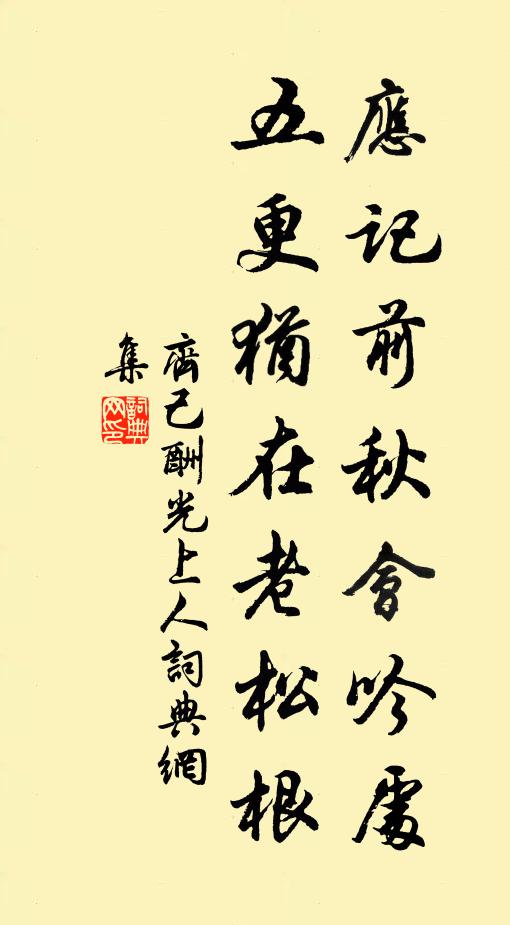 應記前秋會吟處
五更猶在老松根
齊己酬光上人詞典網
集
詞典
网印